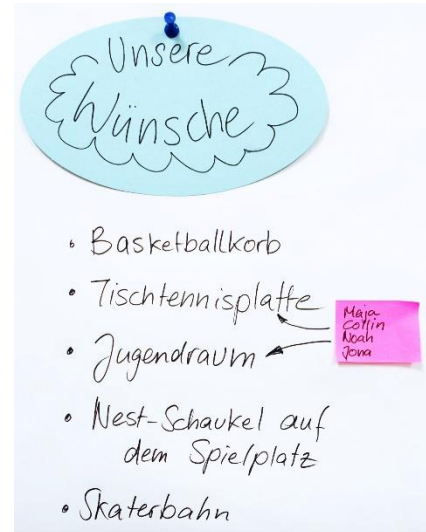 Unsere
Wünsche
• Basketballkorb
• Tischtennisplatte
• Jugendraum
• Nest-Schaukel auf
dem Spielplatz
• Skaterbahn
Maja
Collin
Noah
Jona